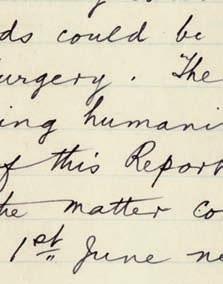 ds could be
urgery. The
ing humani
f this Report
he matter co
1st June ne